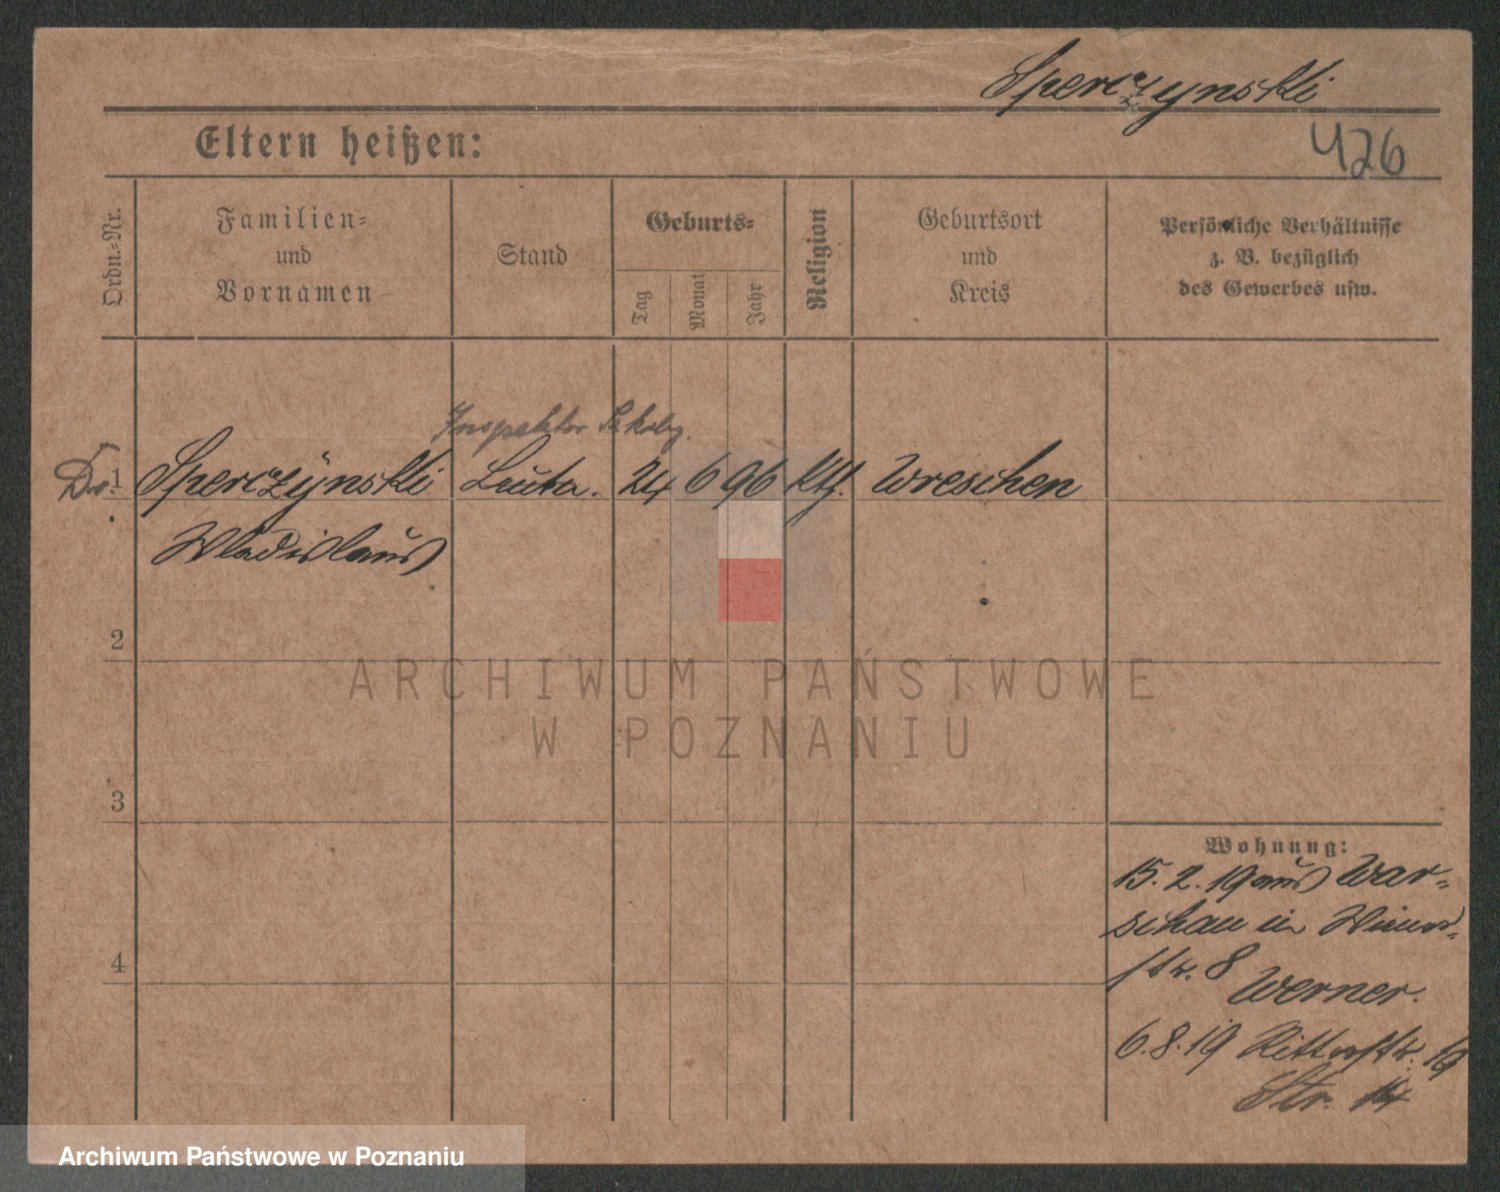 Sperczynski
426
Eltern heißen:
Ordn.-Nr.
Familien-
und
Vornamen
Stand
Geburts-
Tag
Monat
Jahr
Religion
Geburtsort
und
Kreis
Persönliche Verhältnisse
z. B. bezüglich
des Gewerbes usw.
Inspektor
1 Sperczynski 24 6 96 Kth. Wreschen
Wladislaus
2
3
4
Wohnung:
15. 2. 19 aus War-
schau in
str. 8 Werner.
6. 8. 19 Ritterstr.
Str. 14
ARCHIWUM PAŃSTWOWE
W POZNANIU
Archiwum Państwowe w Poznaniu